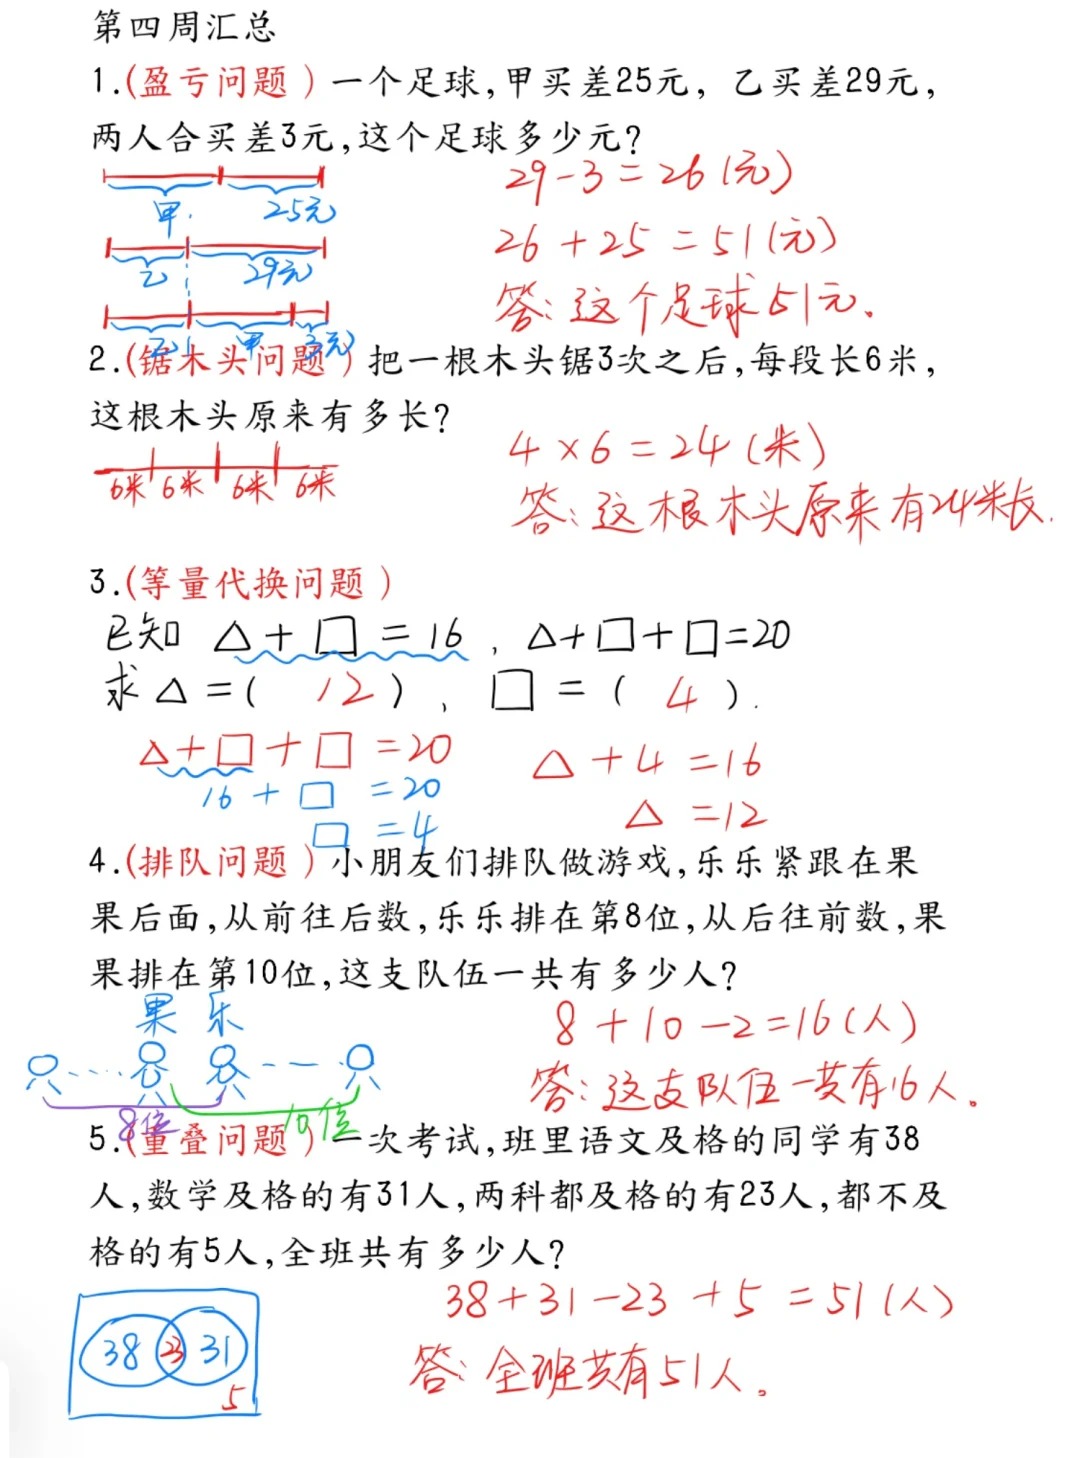 第四周汇总
1.(盈亏问题)一个足球,甲买差25元, 乙买差29元,
两人合买差3元,这个足球多少元?
29-3=26(元)
甲. 25元
26+25=51(元)
乙 29元
答:这个足球51元.
乙 甲 3元
2.(锯木头问题)把一根木头锯3次之后,每段长6米,
这根木头原来有多长?
4×6=24(米)
6米 6米 6米 6米
答:这根木头原来有24米长.
3.(等量代换问题)
已知 △+□=16, △+□+□=20
求△=( 12 ), □=( 4 ).
△+□+□=20 △+4=16
16+□=20
△=12
□=4
4.(排队问题)小朋友们排队做游戏,乐乐紧跟在果
果后面,从前往后数,乐乐排在第8位,从后往前数,果
果排在第10位,这支队伍一共有多少人?
果 乐
8+10-2=16(人)
答:这支队伍一共有16人。
8位 10位
5.(重叠问题)一次考试,班里语文及格的同学有38
人,数学及格的有31人,两科都及格的有23人,都不及
格的有5人,全班共有多少人?
38+31-23+5=51(人)
38 23 31
答:全班共有51人。
5